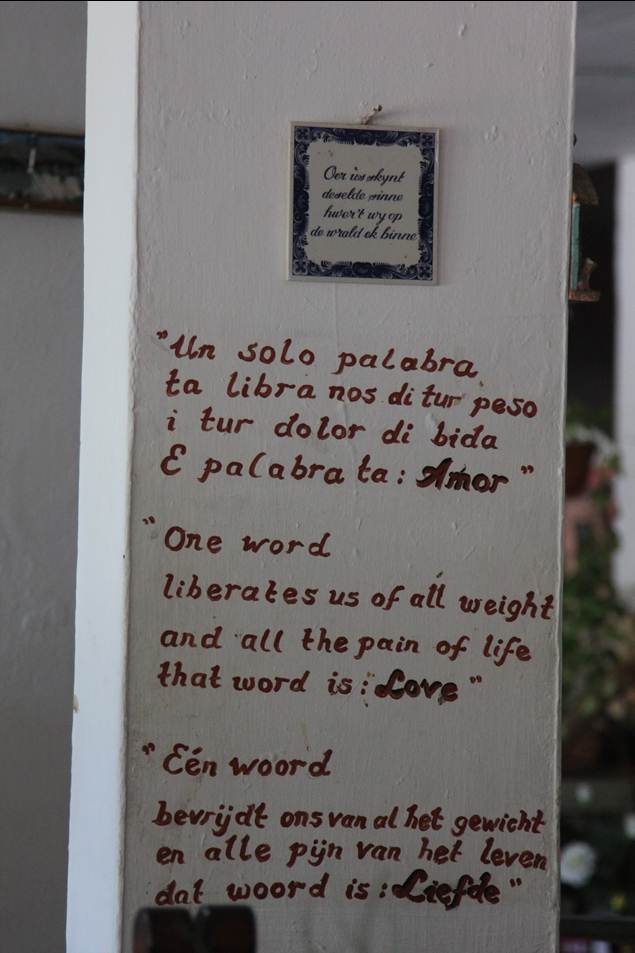 Oer ús skynt
deselde sinne
hwer't wy op
de wrâld ek binne
"Un solo palabra
ta libra nos di tur peso
i tur dolor di bida
E palabra ta: Amor"
"One word
liberates us of all weight
and all the pain of life
that word is: "Love"
"Eén woord
bevrijdt ons van al het gewicht
en alle pijn van het leven
dat woord is: Liefde"